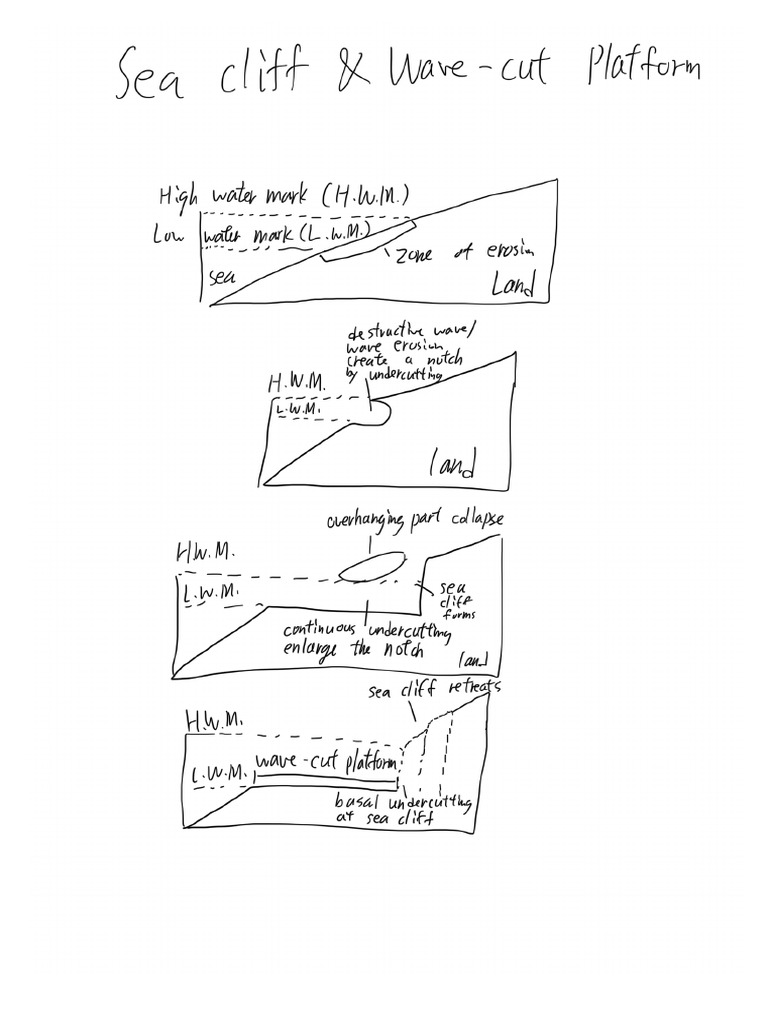 Sea cliff & Wave-cut Platform
High water mark (H.W.M.)
Low water mark (L.W.M.)
zone of erosion
sea
Land
destructive wave/
wave erosion
create a notch
by undercutting
H.W.M.
L.W.M.
land
overhanging part collapse
H.W.M.
L.W.M.
sea
cliff
forms
continuous undercutting
enlarge the notch
land
sea cliff retreats
H.W.M.
wave-cut platform
L.W.M.
basal undercutting
at sea cliff